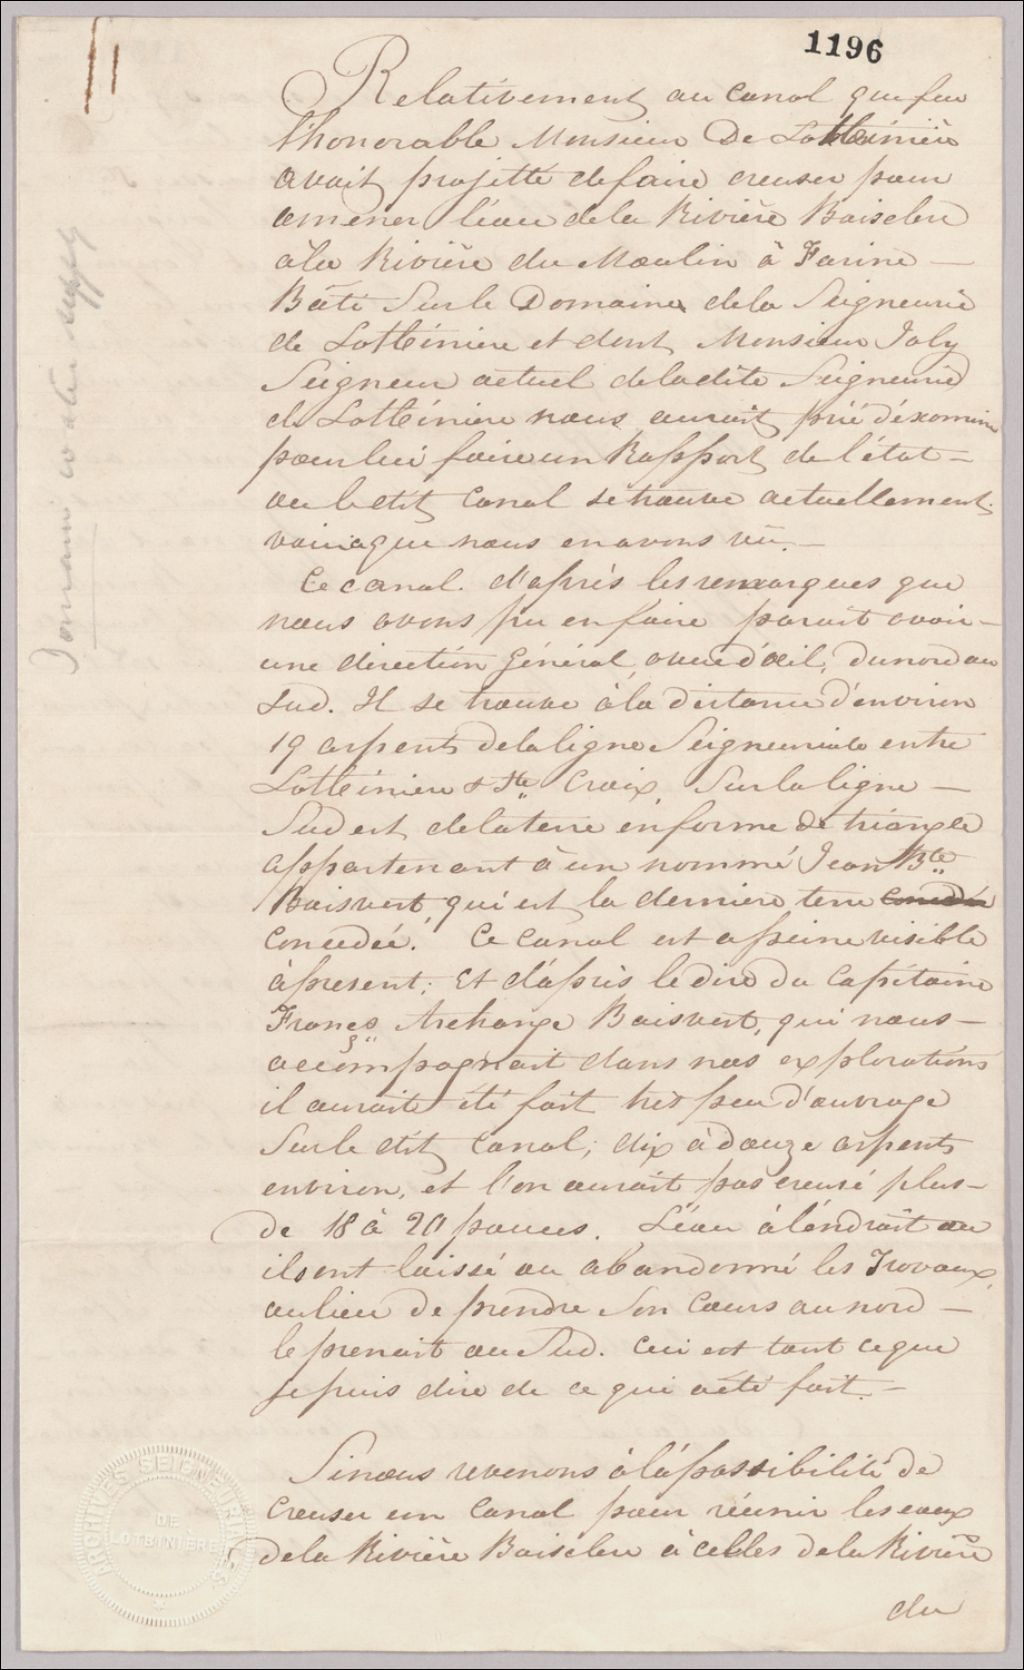 1196
Relativement au Canal que feu
l'honorable Monsieur De Lotbinière
avait projetté de faire creuser pour
amener l'éau de la Rivière Boisclere
à la Rivière du Moulin à Farine —
Bâti Sur le Domaine de la Seigneurie
de Lotbinière et dont Monsieur Joly
Seigneur actuel de la dite Seigneurie
de Lotbinière nous aurait prié d'éxaminer
pour lui faire un Rapport de l'état —
ou le dit Canal se trouve actuellement.
voici ce que nous en avons vû. —
Ce canal. d'après les remarques que
nous avons pu en faire parait avoir —
une direction Général, a vue d'œil, du nord au
Sud. Il se trouve à la distance d'environ
19 arpents de la ligne Seigneuriale entre
Lotbinière & Ste Croix, Sur la ligne —
Sud est de la terre en forme de triangle
appartenant à un nommé Jean Bte
Boisvert, qui est la derniere terre concedée
Concedée. Ce Canal est a peine visible
à present; Et d'après le dire du Capitaine
Franc̨s Archange Boisvert, qui nous —
accompagnait dans nos explorations
il aurait été fait très peu d'ouvrage
Sur le dit Canal; dix à douze arpents
environ, et l'on aurait pas creusé plus —
de 18 à 20 pouces. L'éau à l'éndroit ou
ils ont laissé ou abandonné les Travaux,
au lieu de prendre Son Cours au nord —
le prenait au Sud. Ceci est tout ce que
je puis dire de ce qui a été fait. —
Si nous revenons à la possibilité de
Creuser un Canal pour réunir les eaux
de la Rivière Boisclere à celles de la Rivière
du
ARCHIVES SEIGNEURIALES
DE
LOTBINIÈRE